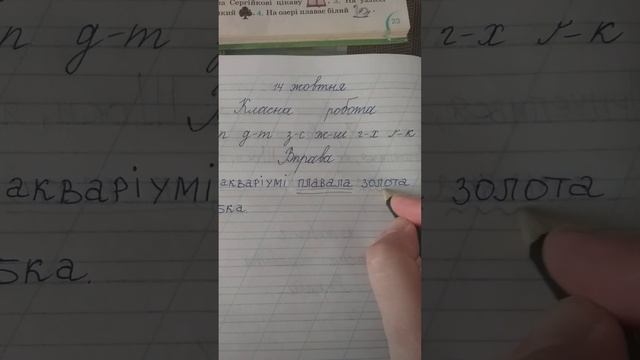 Сергійкові цікаву 3. На
4. На озері плаває білий
23
14 жовтня
Класна робота
п д-т з-с ж-ш г-х ґ-к
Вправа
акваріумі плавала золота
бка.